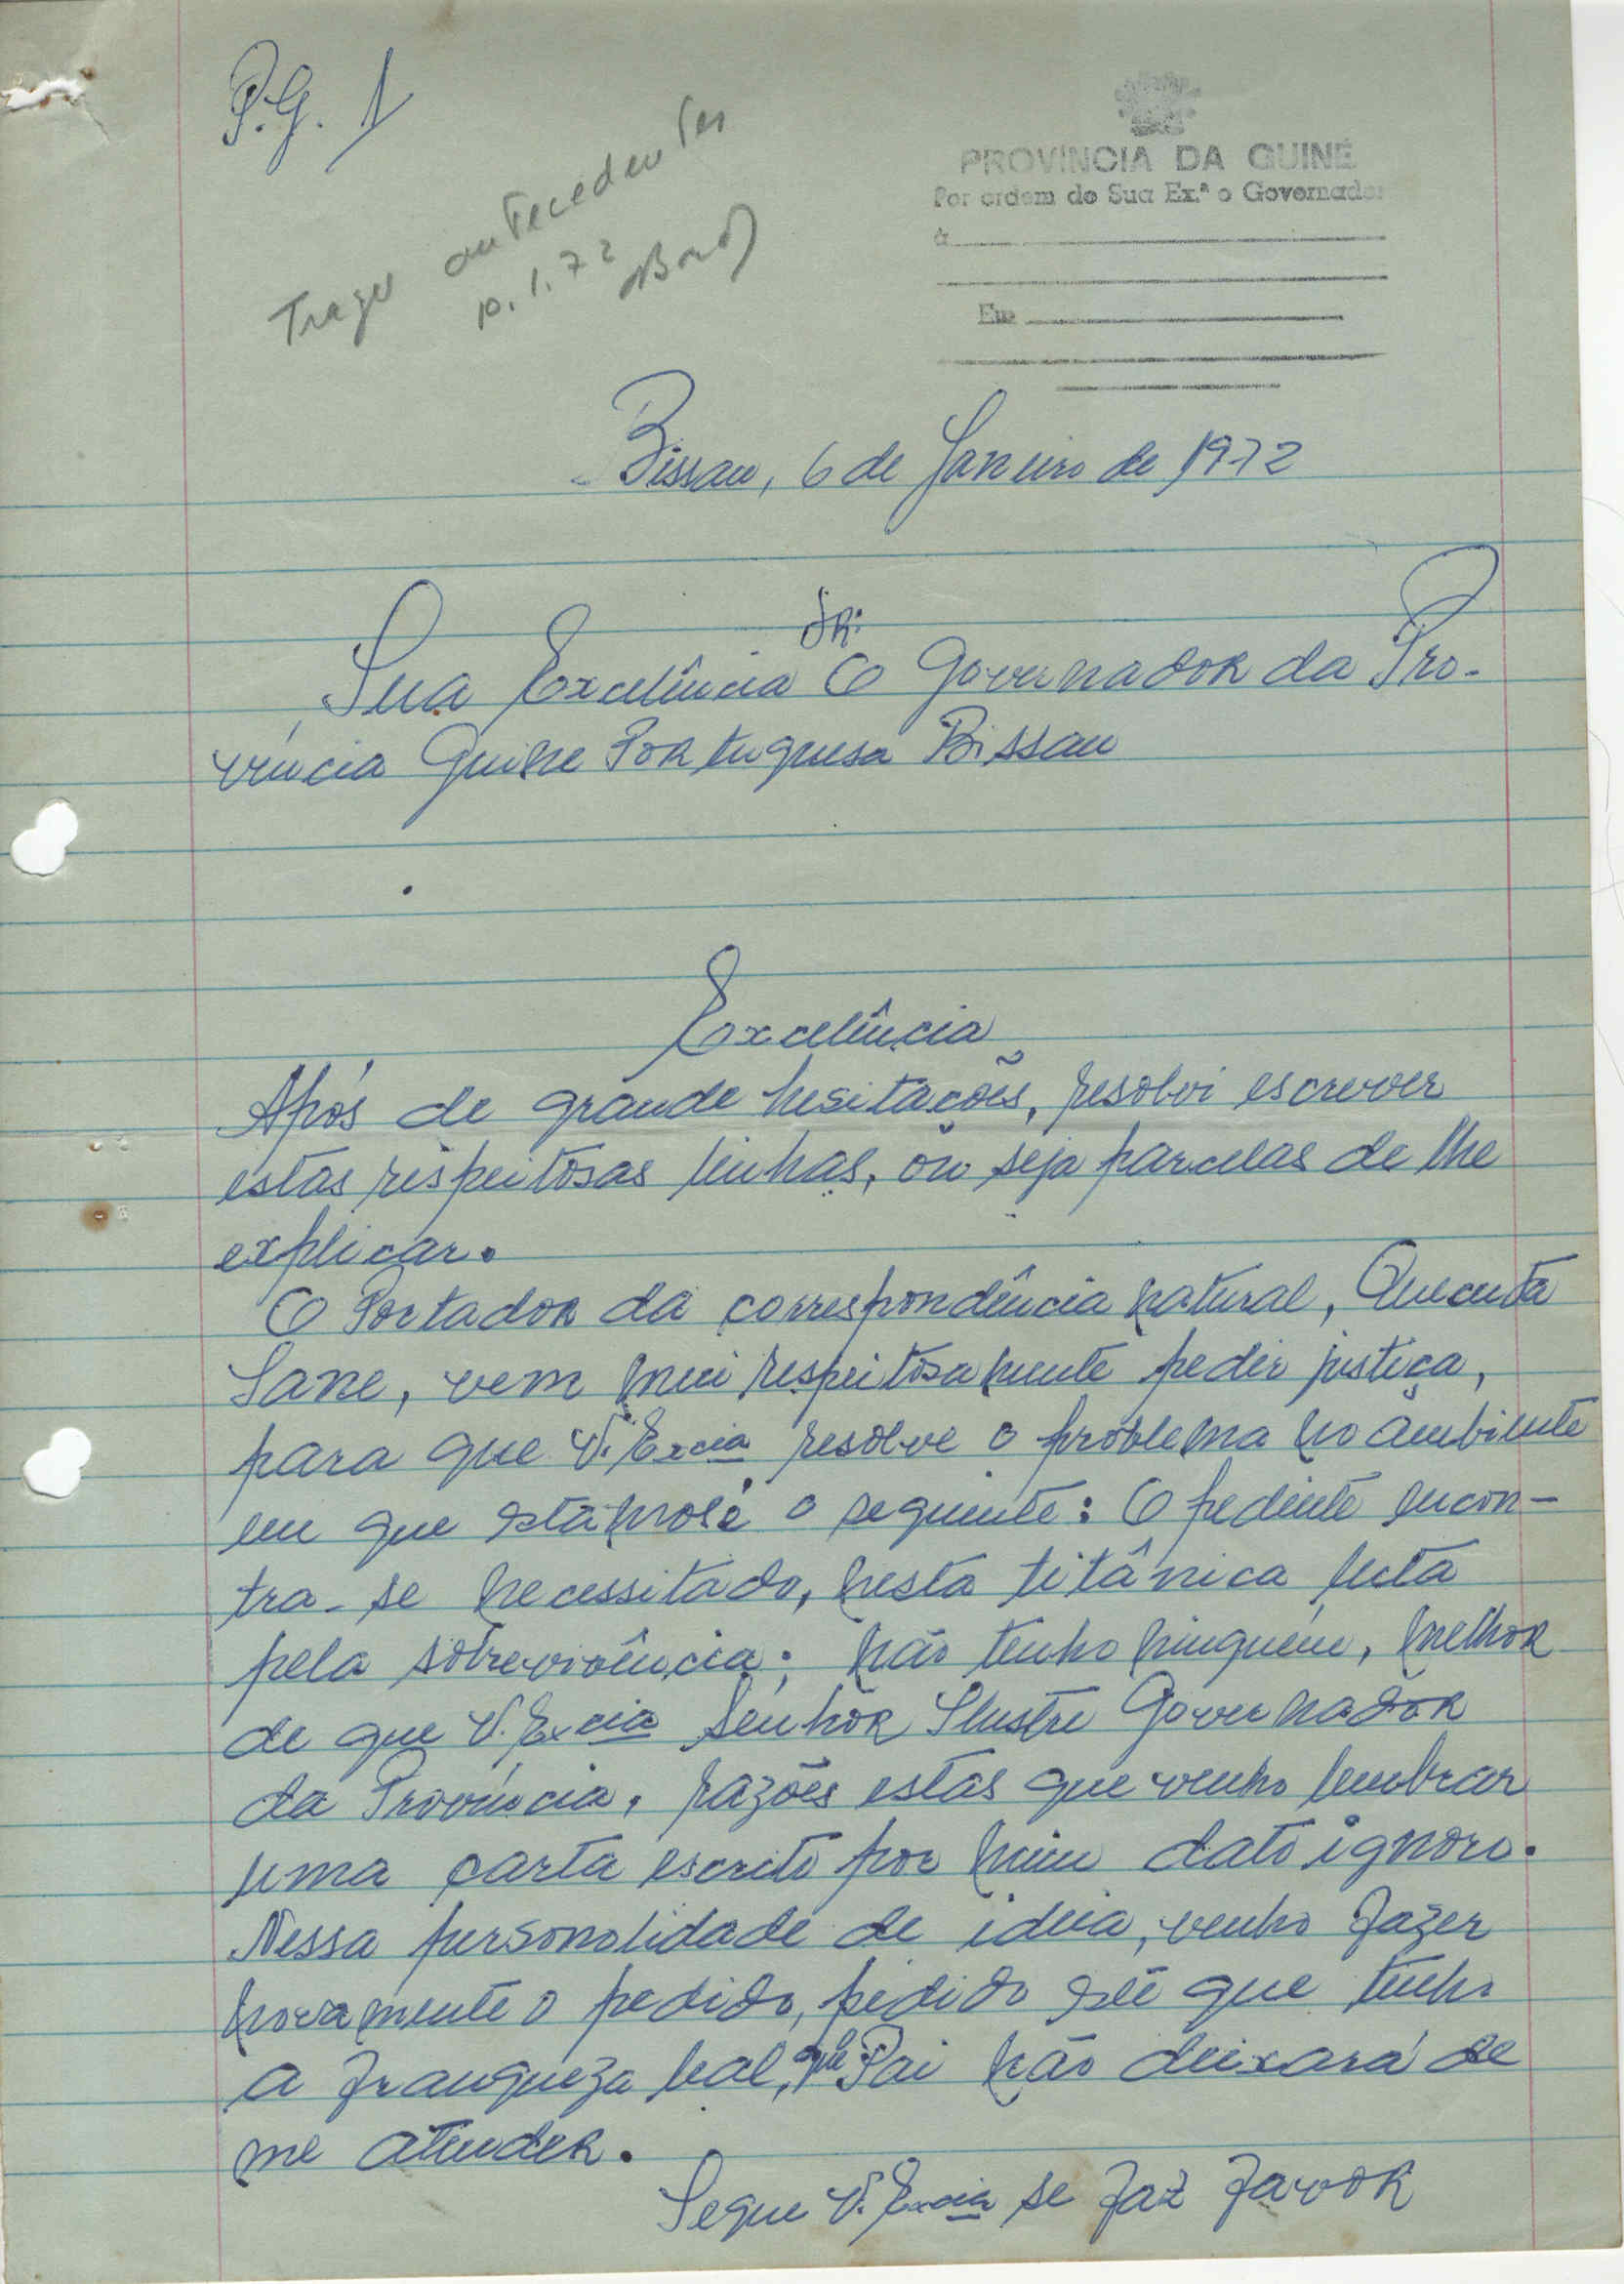 P.G. 1
Trazer antecedentes
10.1.72
PROVINCIA DA GUINÉ
Por ordem de Sua Ex.ª o Governador
à
Em
Bissau, 6 de Janeiro de 1972
SR:
Sua Excelência O Governador da Pro-
víncia Guine Portuguesa Bissau
Excelência
Após de grande hesitações, resolvi escrever
estas respeitosas linhas, ou seja parcelas de lhe
explicar.
O Portador da correspondência natural, Quecuta
Sane, vem mui respeitosamente pedir justiça,
para que V. Excia resolve o problema no ambiente
em que estámos é o seguinte: O pediente encon-
tra-se necessitado, nesta titânica luta
pela sobrevivência; não tenho ninguém, melhor
de que V. Excia Senhor Ilustre Governador
da Província, razões estas que venho lembrar
uma carta escrito por mim dato ignoro.
Nessa personalidade de ideia, venho fazer
novamente o pedido, pedido este que tenho
a franqueza leal, que Pai não deixará de
me atender.
Segue V. Excia se faz favor